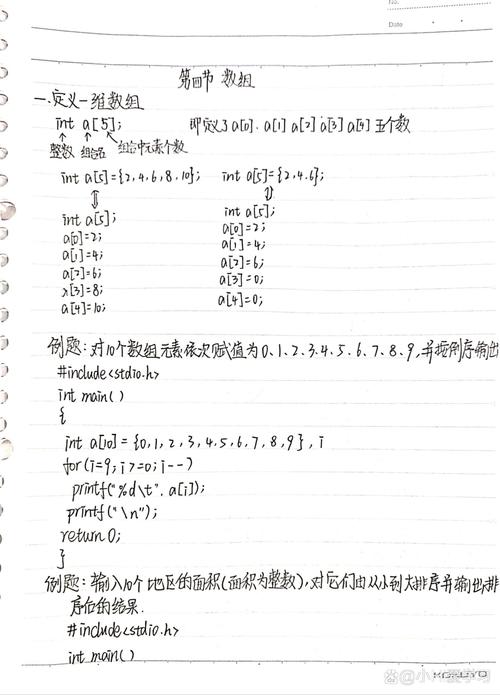 No.
Date
第四节 数组
一.定义一维数组
int a[5]; 即定义了a[0]、a[1] a[2] a[3] a[4] 五个数
整数 组合名 组合中元素个数
int a[5]={2,4,6,8,10}; int a[5]={2,4,6};
int a[5]; int a[5];
a[0]=2; a[0]=2;
a[1]=4; a[1]=4;
a[2]=6; a[2]=6;
a[3]=8; a[3]=0;
a[4]=10; a[4]=0;
例题:对10个数组元素依次赋值为0、1、2、3、4、5、6、7、8、9,并按倒序输出
#include<stdio.h>
int main()
{
int a[10] = {0,1,2,3,4,5,6,7,8,9}, i
for(i=9;i>=0;i--)
printf("%d\t", a[i]);
printf("\n");
return 0;
}
例题:输入10个地区的面积(面积为整数),对它们由从小到大排序并输出排
序后的结果.
#include<stdio.h>
int main()
KOKUYO